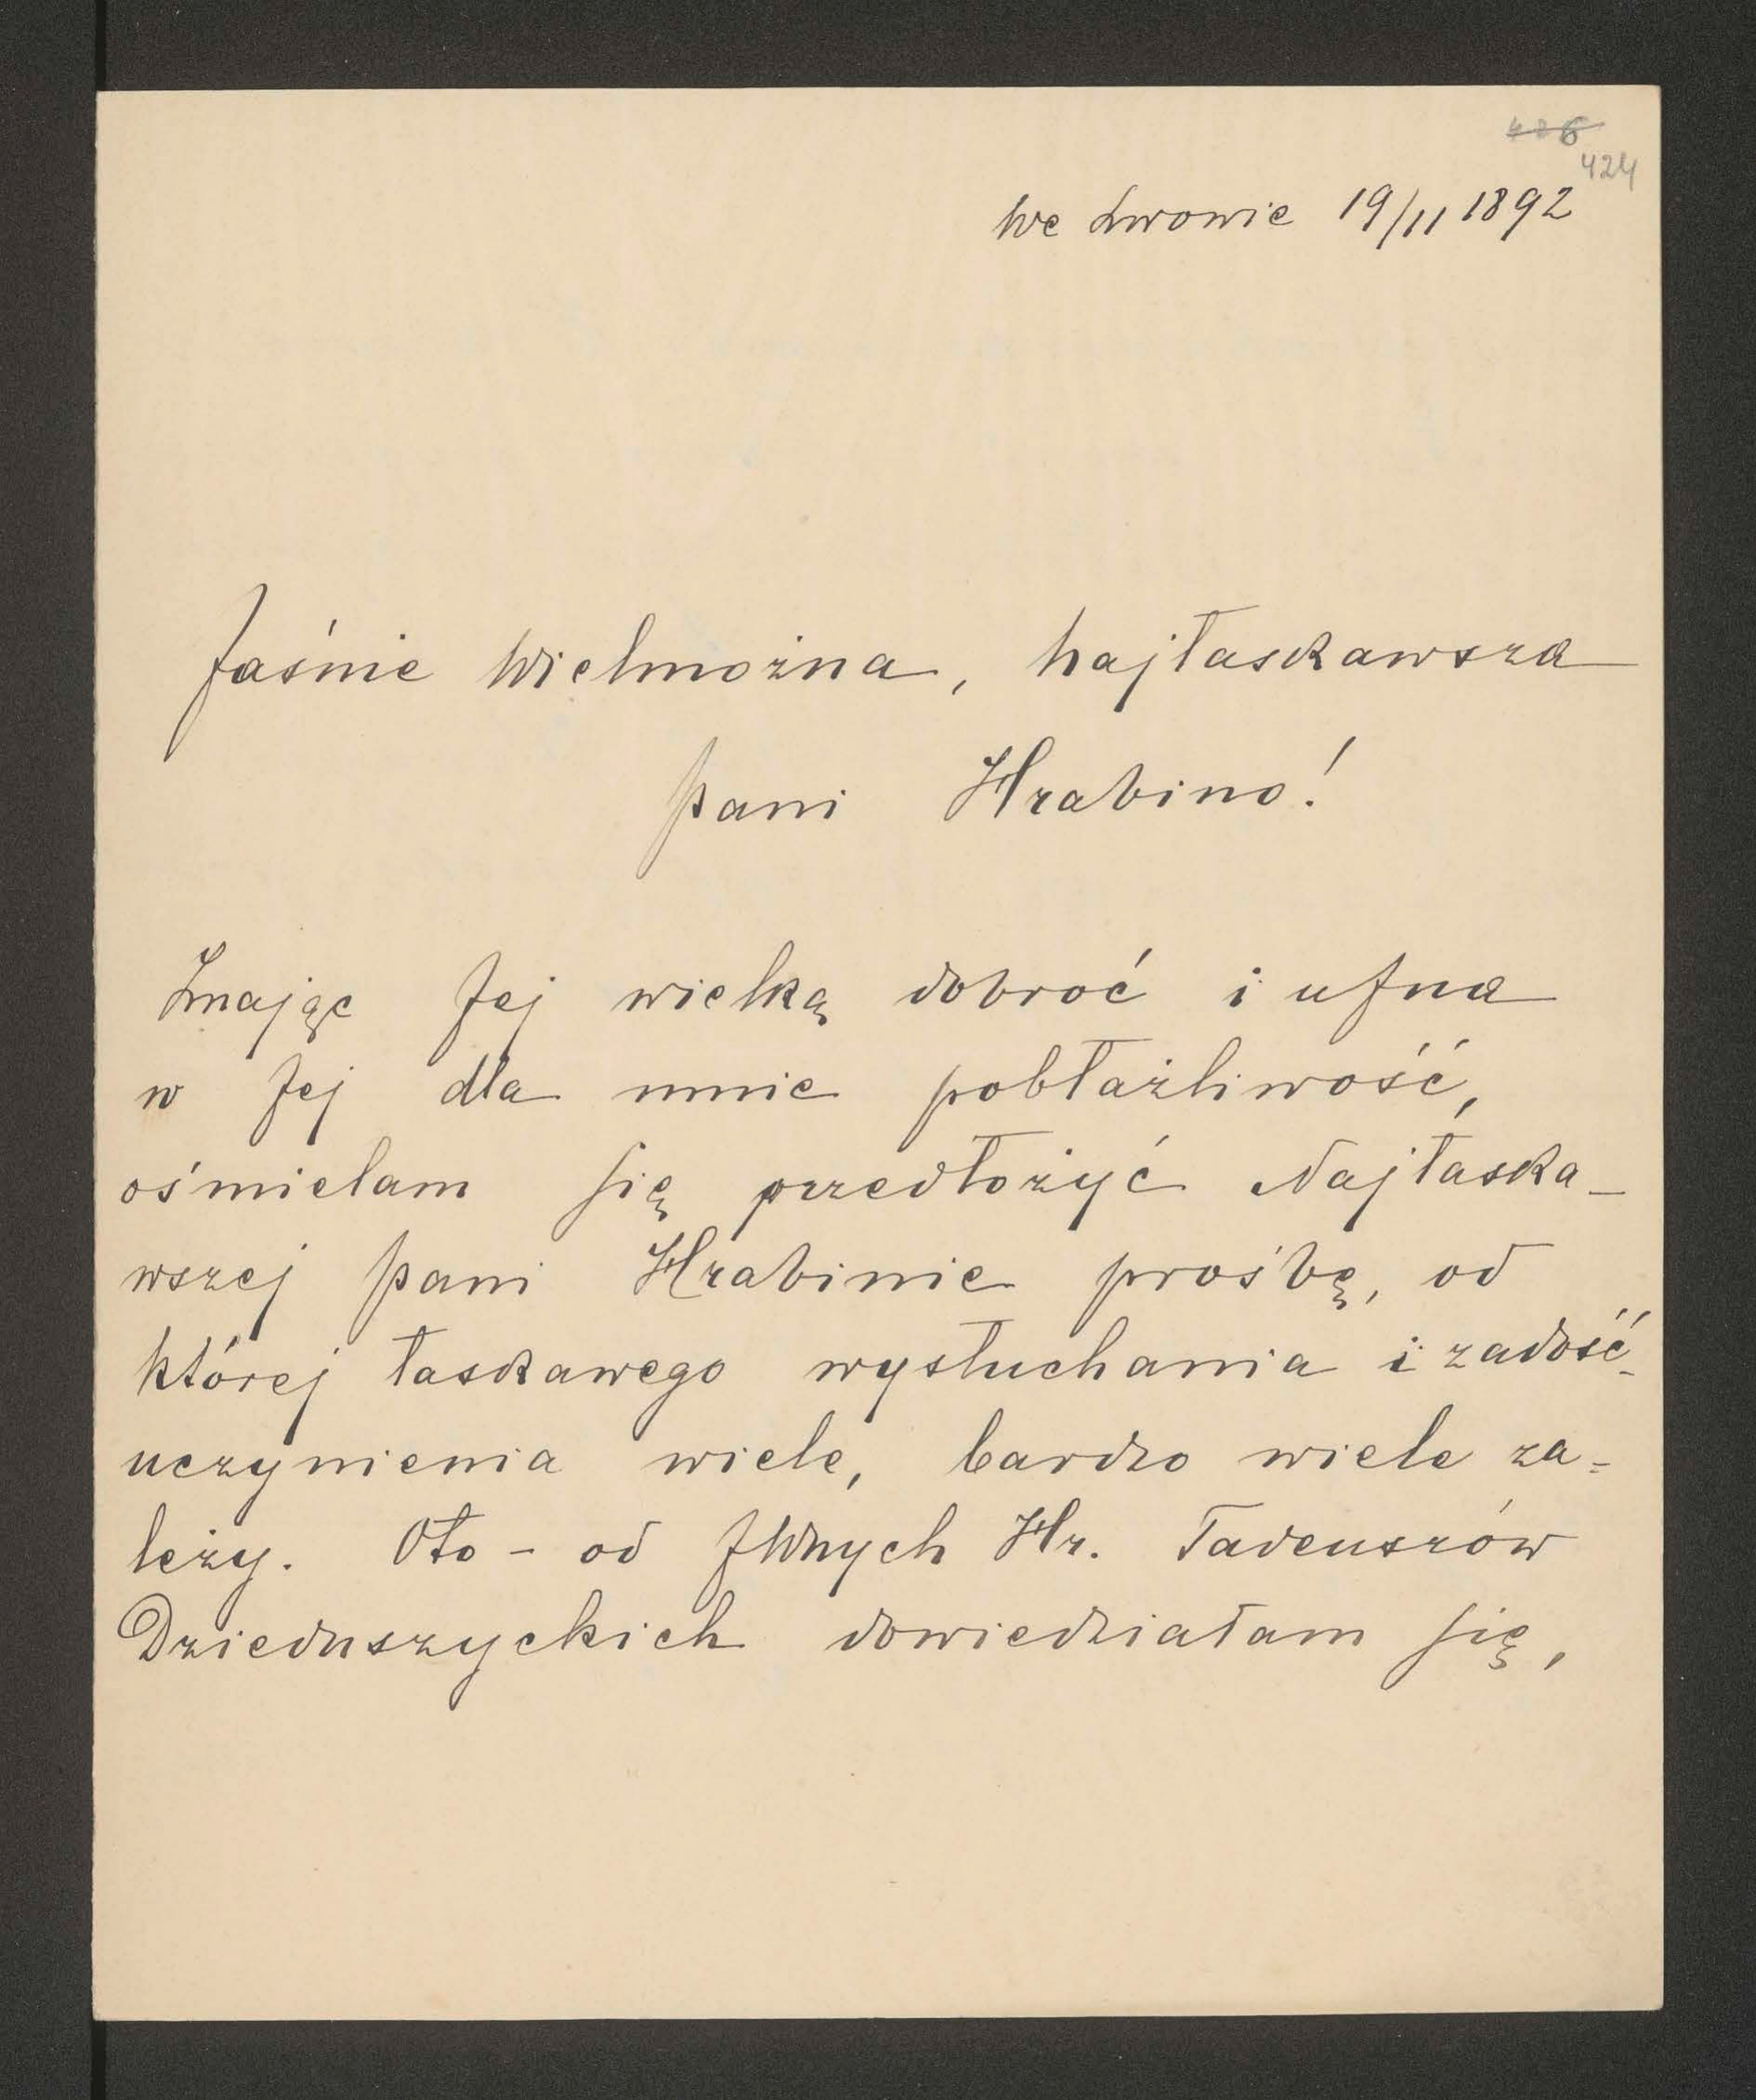 426
424
We Lwowie 19/11 1892
Jaśnie Wielmożna, Najłaskawsza
Pani Hrabino!
Znając Jej wielką dobroć i ufna
w Jej dla mnie pobłażliwość,
ośmielam się przedłożyć Najłaska-
wszej Pani Hrabinie prośbę, od
której łaskawego wysłuchania i zadość-
uczynienia wiele, bardzo wiele za=
leży. Oto - od JWnych Hr. Tadeuszów
Dzieduszyckich dowiedziałam się,